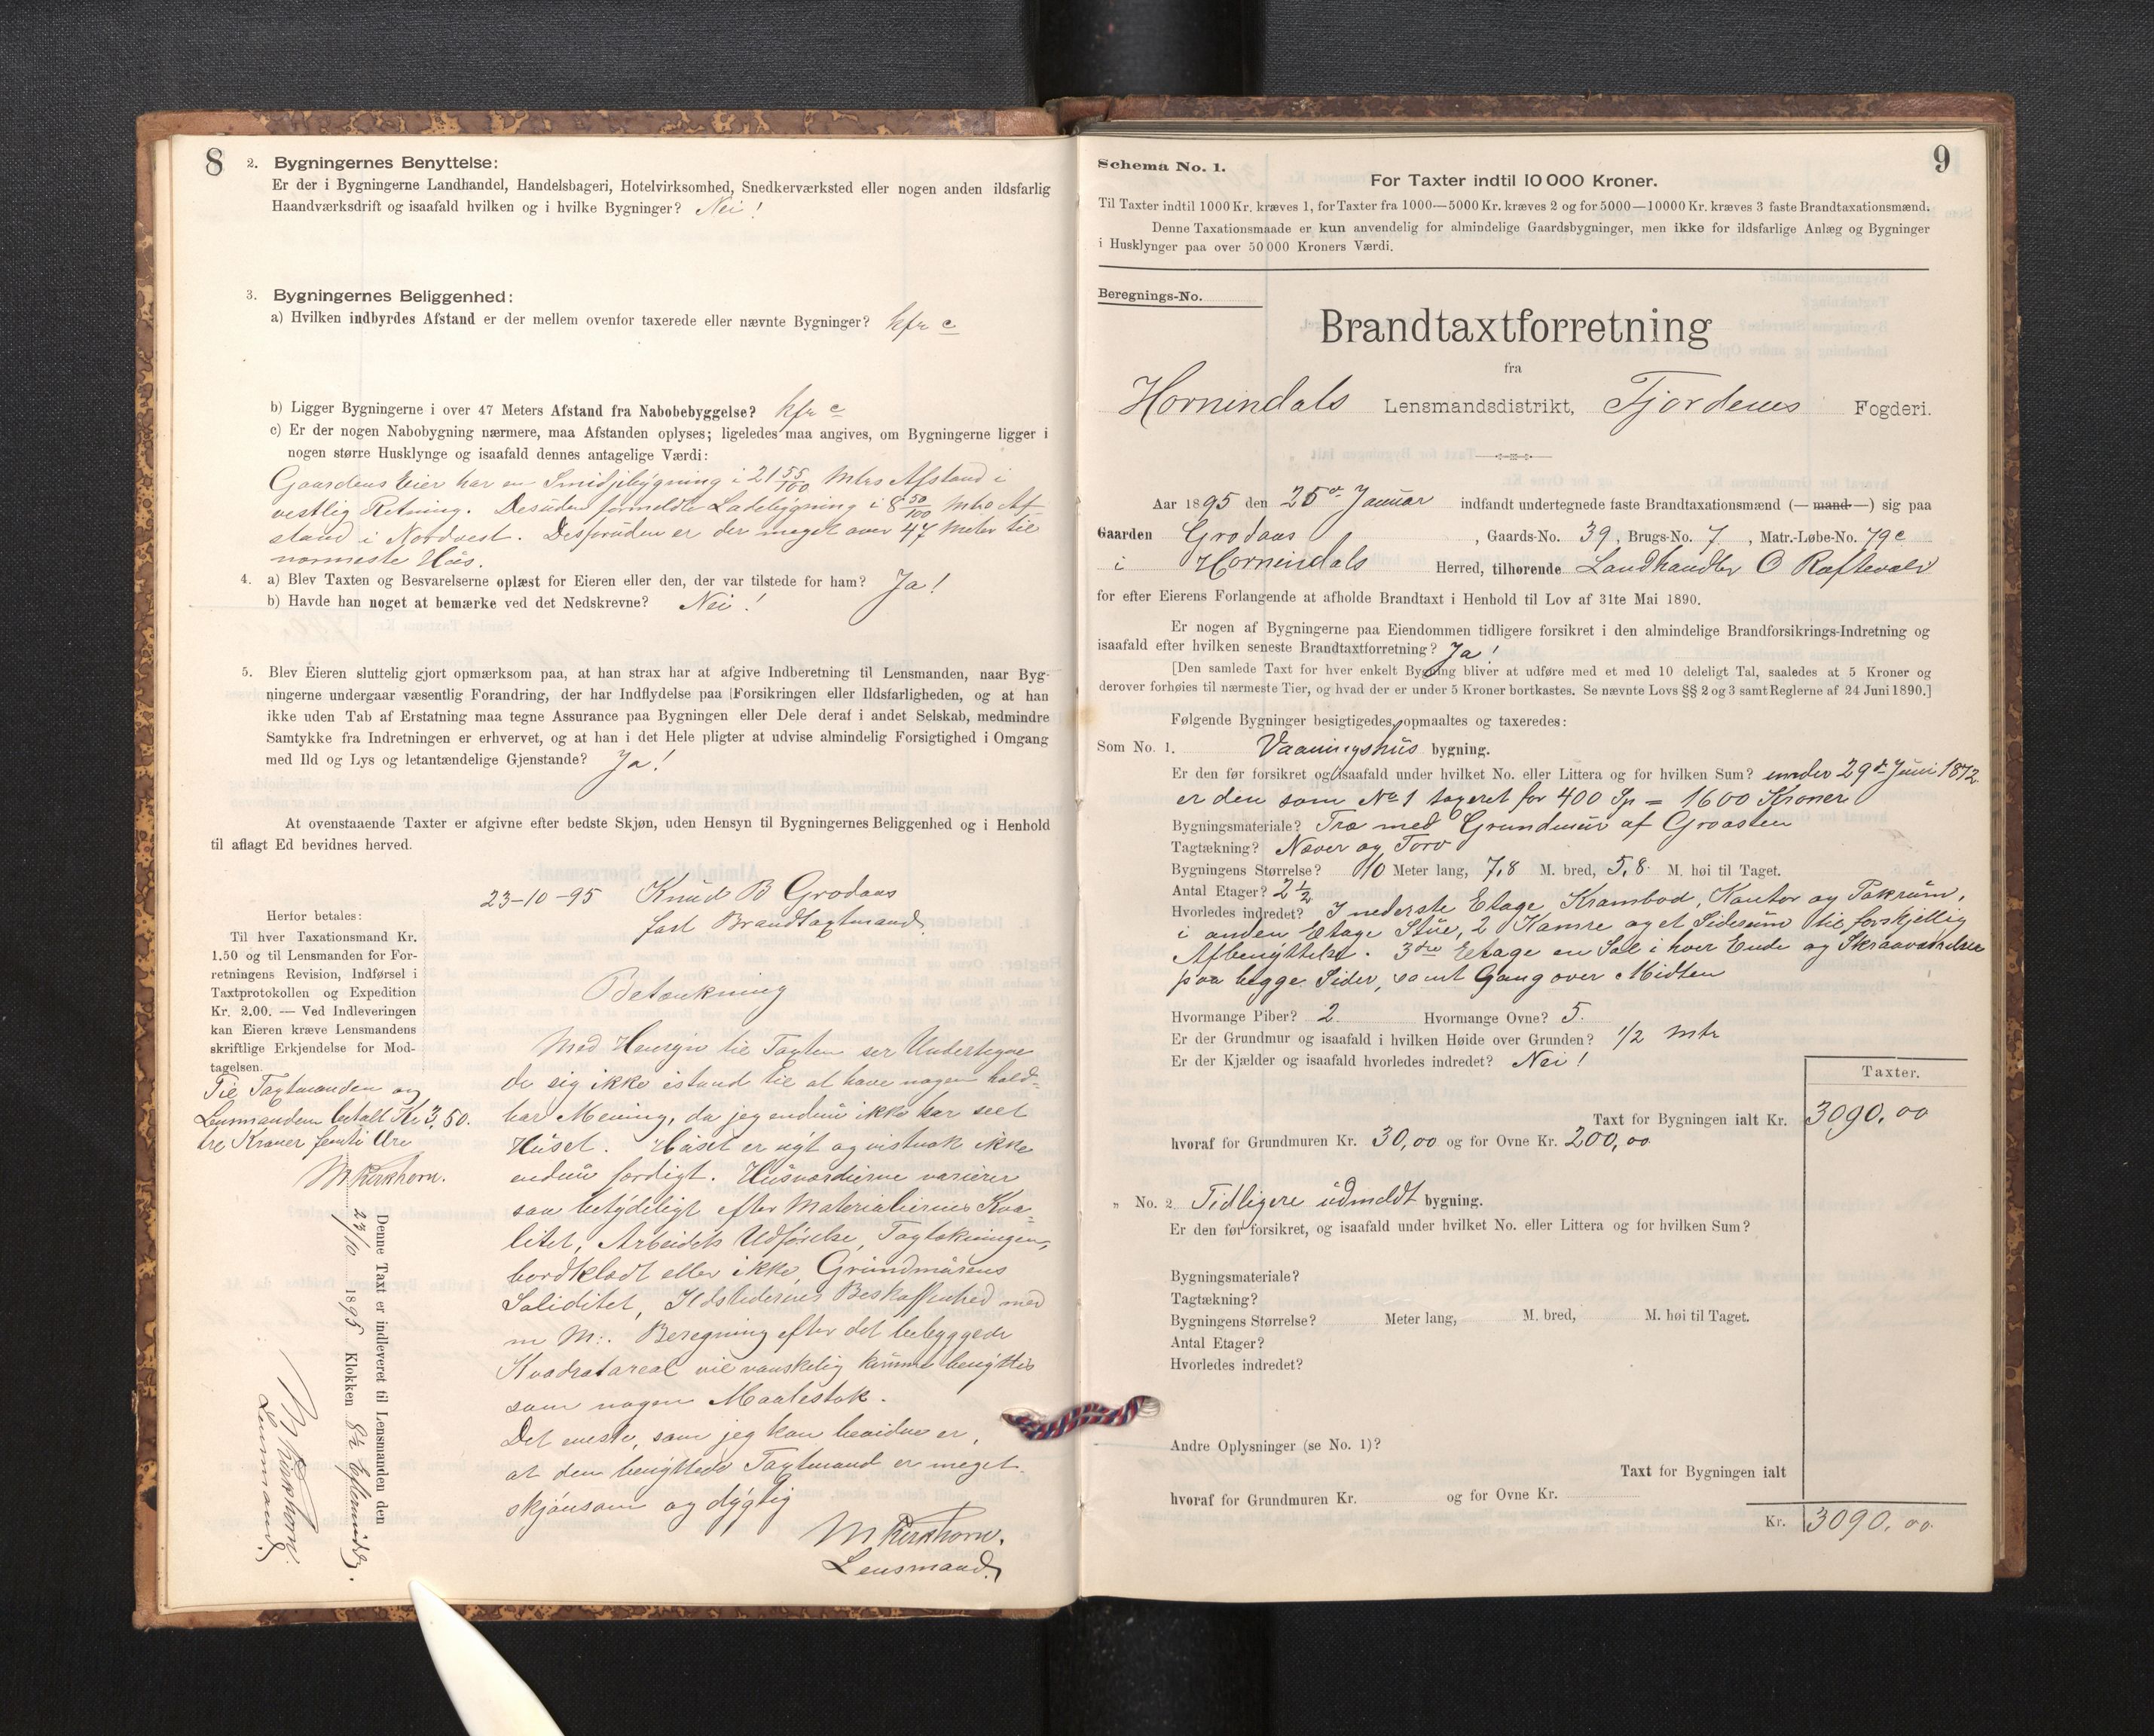 8
2. Bygningernes Benyttelse:
Er der i Bygningerne Landhandel, Handelsbageri, Hotelvirksomhed, Snedkerværksted eller nogen anden ildsfarlig
Haandværksdrift og isaafald hvilken og i hvilke Bygninger? Nei!
3. Bygningernes Beliggenhed:
a) Hvilken indbyrdes Afstand er der mellem ovenfor taxerede eller nævnte Bygninger? kfr c
b) Ligger Bygningerne i over 47 Meters Afstand fra Nabobebyggelse? kfr c
c) Er der nogen Nabobygning nærmere, maa Afstanden oplyses; ligeledes maa angives, om Bygningerne ligger i
nogen større Husklynge og isaafald dennes antagelige Værdi:
Gaardens Eier har en Smidjebygning i 21 55/100 Mtrs Afstand i
vestlig Retning. Desuden formeldte Ladebygning i 8 50/100 Mtrs Af-
stand i Nordvest. Desforuden er der meget over 47 Meter til
nærmeste Hus.
4. a) Blev Taxten og Besvarelserne oplæst for Eieren eller den, der var tilstede for ham? Ja!
b) Havde han noget at bemærke ved det Nedskrevne? Nei!
5. Blev Eieren sluttelig gjort opmærksom paa, at han strax har at afgive Indberetning til Lensmanden, naar Byg-
ningerne undergaar væsentlig Forandring, der har Indflydelse paa Forsikringen eller Ildsfarligheden, og at han
ikke uden Tab af Erstatning maa tegne Assurance paa Bygningen eller Dele deraf i andet Selskab, medmindre
Samtykke fra Indretningen er erhvervet, og at han i det Hele pligter at udvise almindelig Forsigtighed i Omgang
med Ild og Lys og letantændelige Gjenstande? Ja!
At ovenstaaende Taxter er afgivne efter bedste Skjøn, uden Hensyn til Bygningernes Beliggenhed og i Henhold
til aflagt Ed bevidnes herved.
23-10-95 Knud B Grodaas
fast Brandtaxtmand
Herfor betales:
Til hver Taxationsmand Kr.
1.50 og til Lensmanden for For-
retningens Revision, Indførsel i
Taxtprotokollen og Expedition
Kr. 2.00. — Ved Indleveringen
kan Eieren kræve Lensmandens
skriftlige Erkjendelse for Mod-
tagelsen.
Til Taxtmanden og
Lensmanden betalt Kr 3,50.
tre Kroner femti Øre
M Kirkhorn.
Denne Taxt er indleveret til Lensmanden den
23/10 1895 Klokken 8½ Eftermiddag.
M Kirkhorn
Lensmand.
Betænkning
Med Hensyn til Taxten ser Undertegne
de sig ikke istand til at have nogen hold-
bar Mening, da jeg endnu ikke har seet
Huset. Huset er nyt og vistnok ikke
endnu færdigt. Husværdierne varierer
saa betydeligt efter Materialiernes Kva-
litet, Arbeidets Udførelse, Tagtækningen,
bordklædt eller ikke, Grundmurens
Soliditet, Ildstedernes Beskaffenhed med
m M:. Beregning efter det bebyggede
Kvadratareal vil vanskelig kunne benyttes
som nogen Maalestok.
Det eneste, som jeg kan bevidne er,
at den benyttede Taxtmand er meget
skjønsom og dygtig
M Kirkhorn.
Lensmand.
9
Schema No. 1.
For Taxter indtil 10 000 Kroner.
Til Taxter indtil 1000 Kr. kræves 1, for Taxter fra 1000—5000 Kr. kræves 2 og for 5000—10000 Kr. kræves 3 faste Brandtaxationsmænd.
Denne Taxationsmaade er kun anvendelig for almindelige Gaardsbygninger, men ikke for ildsfarlige Anlæg og Bygninger
i Husklynger paa over 50 000 Kroners Værdi.
Beregnings-No.
Brandtaxtforretning
fra
Hornindals Lensmandsdistrikt, Fjordenes Fogderi.
Aar 1895 den 25de Januar indfandt undertegnede faste Brandtaxationsmænd (— mand —) sig paa
Gaarden Grodaas, Gaards-No. 39, Brugs-No. 7, Matr.-Løbe-No. 79c
i Hornindals Herred, tilhørende Landhandler O Raftevold
for efter Eierens Forlangende at afholde Brandtaxt i Henhold til Lov af 31te Mai 1890.
Er nogen af Bygningerne paa Eiendommen tidligere forsikret i den almindelige Brandforsikrings-Indretning og
isaafald efter hvilken seneste Brandtaxtforretning? Ja!
[Den samlede Taxt for hver enkelt Bygning bliver at udføre med et med 10 deleligt Tal, saaledes at 5 Kroner og
derover forhøies til nærmeste Tier, og hvad der er under 5 Kroner bortkastes. Se nævnte Lovs §§ 2 og 3 samt Reglerne af 24 Juni 1890.]
Følgende Bygninger besigtigedes, opmaaltes og taxeredes:
Som No. 1. Vaaningshus bygning.
Er den før forsikret og isaafald under hvilket No. eller Littera og for hvilken Sum? under 29de Juni 1872
er den som No 1 taxeret for 400 Sp = 1600 Kroner
Bygningsmateriale? Træ med Grundmur af Graasten
Tagtækning? Næver og Torv
Bygningens Størrelse? 10 Meter lang, 7,8 M. bred, 5,8 M. høi til Taget.
Antal Etager? 2½
Hvorledes indredet? I nederste Etage Krambod, Kontor og Pakrum,
i anden Etage Stue, 2 Kamre og et Siderum til forskjellig
Afbenyttelse. 3die Etage en Sal i hver Ende og Skraaværelser
paa begge Sider, samt Gang over Midten
Hvormange Piber? 2. Hvormange Ovne? 5.
Er der Grundmur og isaafald i hvilken Høide over Grunden? 1/2 Mtr
Er der Kjælder og isaafald hvorledes indredet? Nei!
Taxter.
Taxt for Bygningen ialt Kr. 3090,00
hvoraf for Grundmuren Kr. 30,00 og for Ovne Kr. 200,00
„ No. 2 Tidligere udmeldt bygning.
Er den før forsikret, og isaafald under hvilket No. eller Littera og for hvilken Sum?
Bygningsmateriale?
Tagtækning?
Bygningens Størrelse? Meter lang, M. bred, M. høi til Taget.
Antal Etager?
Hvorledes indredet?
Andre Oplysninger (se No. 1)?
Taxt for Bygningen ialt
hvoraf for Grundmuren Kr. og for Ovne Kr.
Kr. 3090,00